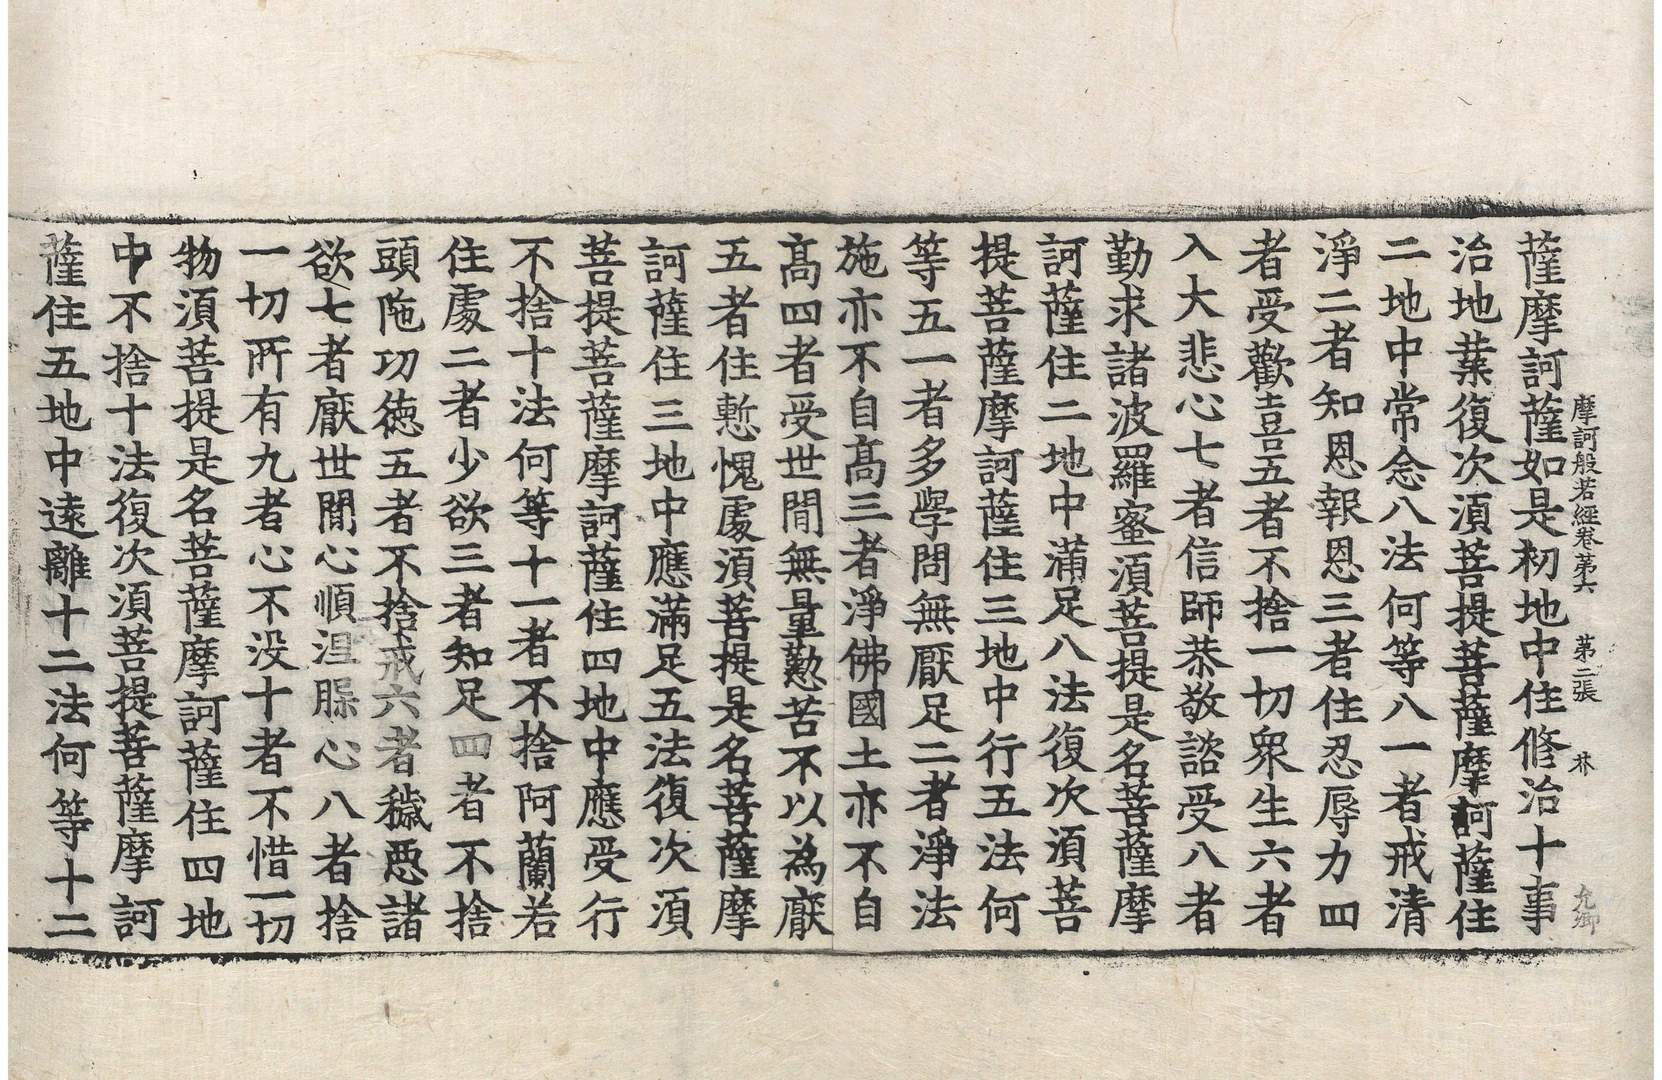 摩訶般若經卷第六　第二張　林　允卿
薩摩訶薩如是初地中住修治十事
治地業復次湏菩提菩薩摩訶薩住
二地中常念八法何等八一者戒清
淨二者知恩報恩三者住忍辱力四
者受歡喜五者不捨一切衆生六者
入大悲心七者信師恭敬諮受八者
勤求諸波羅蜜湏菩提是名菩薩摩
訶薩住二地中滿足八法復次湏菩
提菩薩摩訶薩住三地中行五法何
等五一者多學問無厭足二者淨法
施亦不自髙三者淨佛國土亦不自
髙四者受世閒無量懃苦不以為厭
五者住慙愧處湏菩提是名菩薩摩
訶薩住三地中應滿足五法復次湏
菩提菩薩摩訶薩住四地中應受行
不捨十法何等十一者不捨阿蘭若
住處二者少欲三者知足四者不捨
頭陁功徳五者不捨戒六者穢惡諸
欲七者厭世閒心順涅槃心八者捨
一切所有九者心不没十者不惜一切
物湏菩提是名菩薩摩訶薩住四地
中不捨十法復次湏菩提菩薩摩訶
薩住五地中遠離十二法何等十二